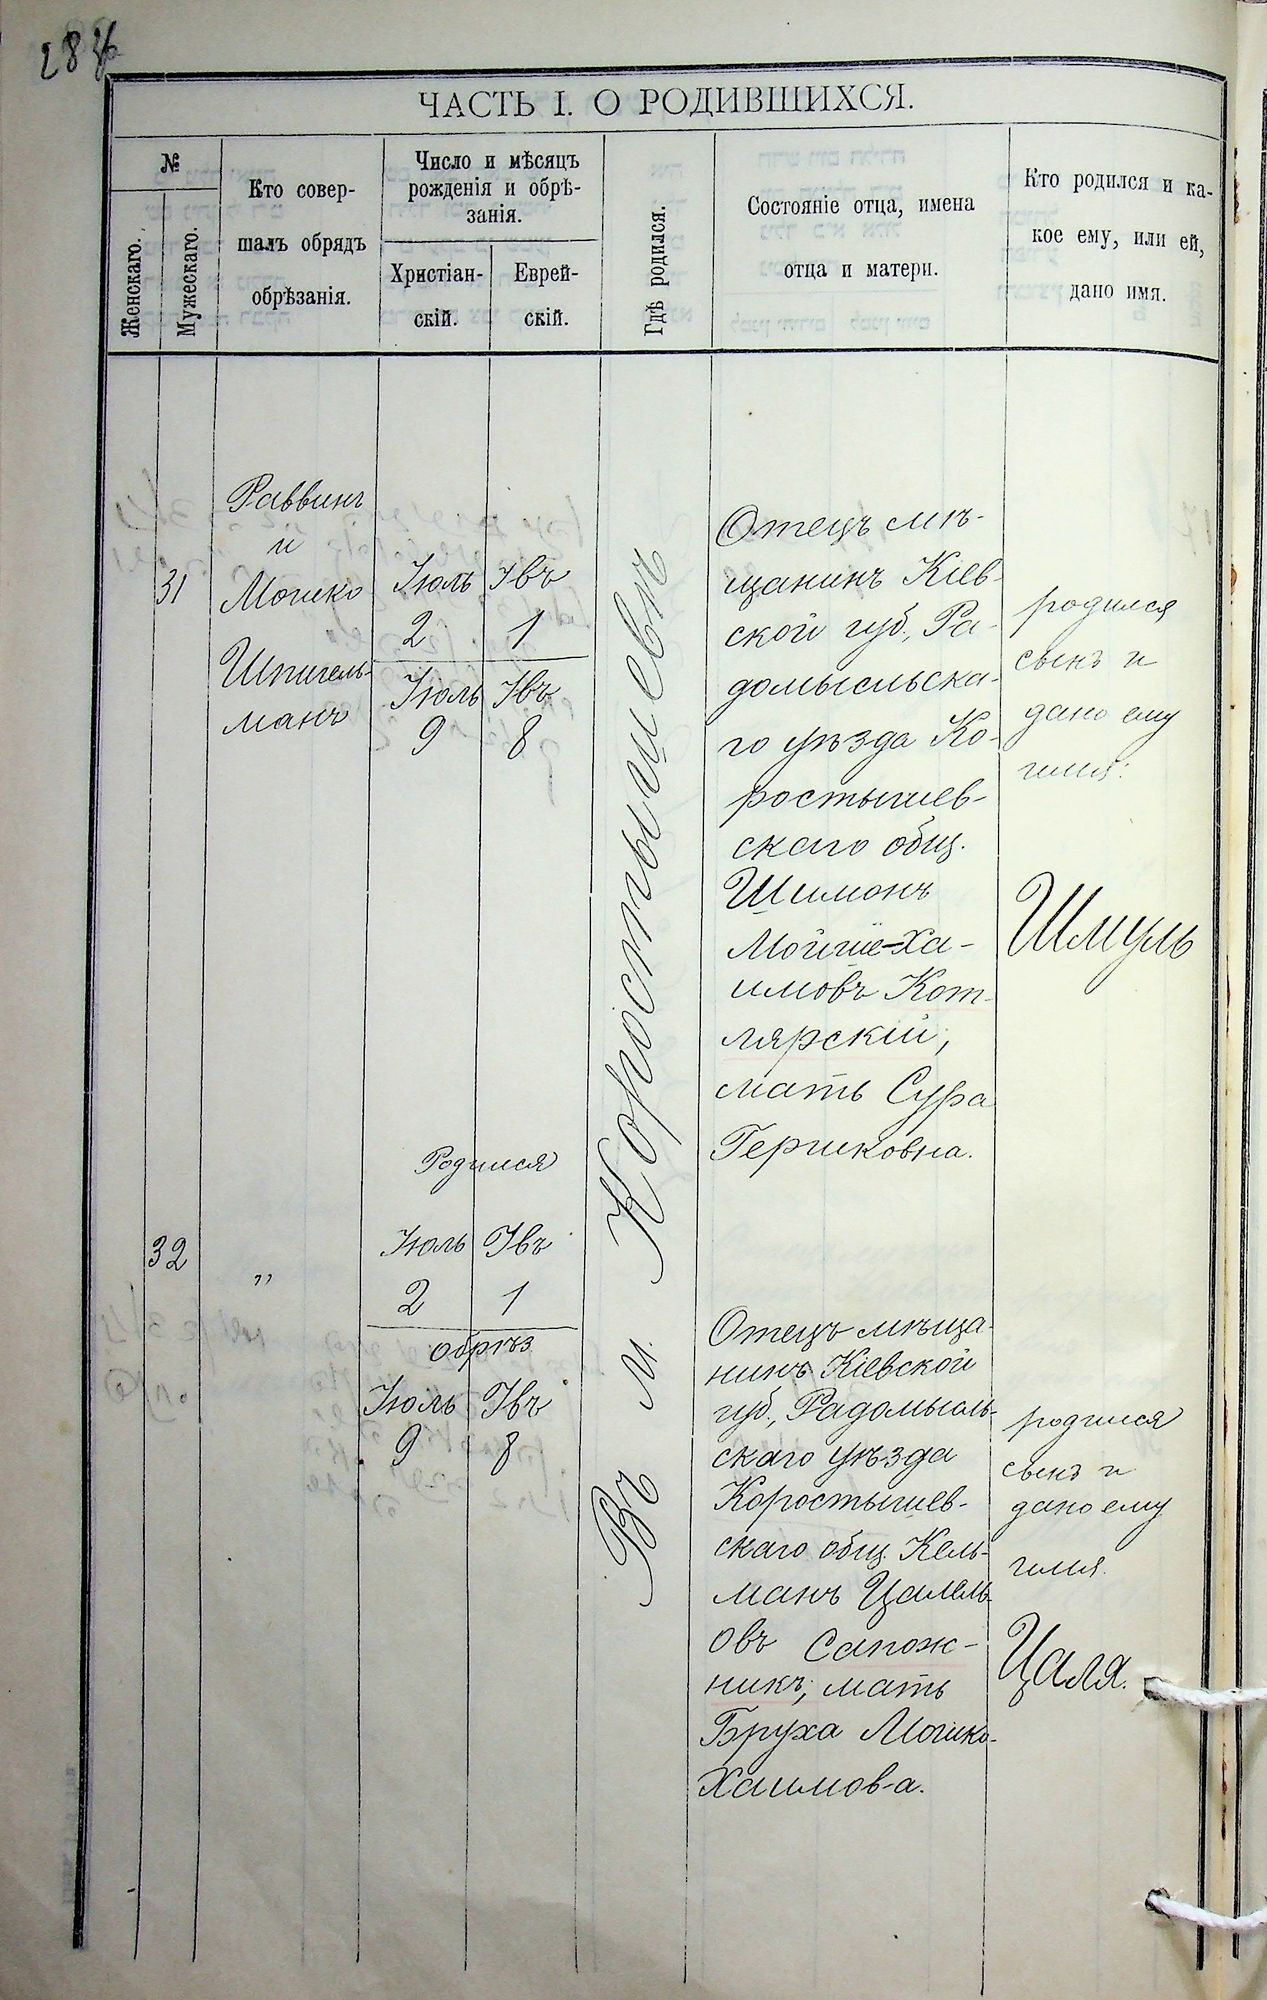 ЧАСТЬ I. О РОДИВШИХСЯ.
№
Женскаго.
Мужескаго.
Кто совер-
шалъ обрядъ
обрѣзанія.
Число и мѣсяцъ
рожденія и обрѣ-
занія.
Христіан-
скій.
Еврей-
скій.
Гдѣ родился.
Состояніе отца, имена
отца и матери.
Кто родился и ка-
кое ему, или ей,
дано имя.
31
Раввинъ
и
Мошко
Шпигель-
манъ
Іюль Ӏвъ
2 1
Іюль Ӏвъ
9 8
Въ м. Коростышевѣ
Отецъ мѣ-
щанинъ Кіев-
ской губ., Ра-
домысльска-
го уѣзда Ко-
ростышев-
скаго общ.
Шимонъ
Мойше-Ха-
имовъ Кот-
лярскій,
мать Сура
Гершковна.
родился
сынъ и
дано ему
имя:
Шмуль
32
"
Родился
Іюль Ӏвъ
2 1
обрѣз
Іюль Ӏвъ
9 8
Отецъ мѣща-
нинъ Кіевской
губ., Радомысль-
скаго уѣзда
Коростышев-
скаго общ. Кель-
манъ Цалель-
овъ Сапож-
никъ, мать
Бруха Мошко-
Хаимова.
родился
сынъ и
дано ему
имя.
Цаля.